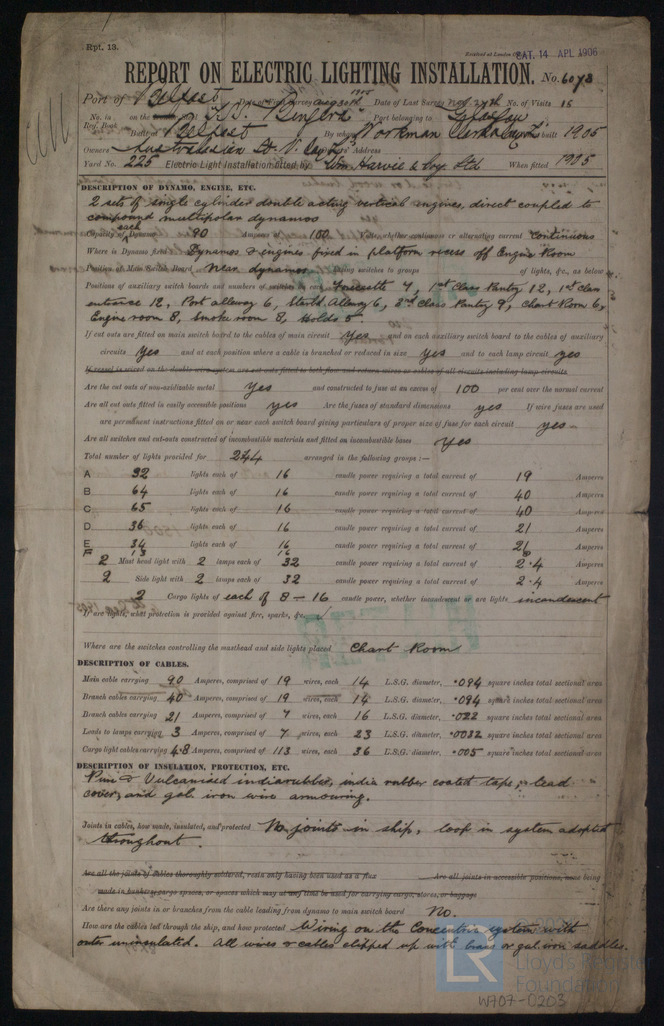 Rpt. 13.
Received at London SAT. 14 APL 1906
REPORT ON ELECTRIC LIGHTING INSTALLATION. No. 6073
Port of Belfast Date of First Survey Aug 30th 1905 Date of Last Survey Nov 27th No. of Visits 15
No. in Reg. Book on the Port belonging to
Built at Belfast By whom Workman Clark & Coy Ld built 1905
Owners Australasian U. S. N. Coy Ld Owners' Address
Yard No. 225 Electric Light Installation fitted by Wm Harvie & Coy. Ltd When fitted 1905
DESCRIPTION OF DYNAMO, ENGINE, ETC.
2 sets of single cylinder double acting vertical engines, direct coupled to
compound multipolar dynamos
Capacity of each Dynamo 90 Amperes at 100 Volts, whether continuous or alternating current Continuous
Where is Dynamo fixed Dynamos & engines fixed in platform recess off Engine Room
Position of Main Switch Board Near dynamos having switches to groups of lights, &c., as below
Positions of auxiliary switch boards and numbers of switches on each Forecastle 4, 1st Class Pantry 12, 1st Class
entrance 12, Port alleway 6, Starbd Alleway 6, 2nd Class Pantry 9, Chart Room 6,
Engine room 8, Smoke room 8, Holds 5
If cut outs are fitted on main switch board to the cables of main circuit Yes and on each auxiliary switch board to the cables of auxiliary
circuits Yes and at each position where a cable is branched or reduced in size yes and to each lamp circuit yes
If vessel is wired on the double wire system are cut outs fitted to both flow and return wires or cables of all circuits including lamp circuits
Are the cut outs of non-oxidizable metal yes and constructed to fuse at an excess of 100 per cent over the normal current
Are all cut outs fitted in easily accessible positions yes Are the fuses of standard dimensions yes If wire fuses are used
are permanent instructions fitted on or near each switch board giving particulars of proper size of fuse for each circuit yes
Are all switches and cut-outs constructed of incombustible materials and fitted on incombustible bases Yes
Total number of lights provided for 244 arranged in the following groups :—
A 32 lights each of 16 candle power requiring a total current of 19 Amperes
B 64 lights each of 16 candle power requiring a total current of 40 Amperes
C 65 lights each of 16 candle power requiring a total current of 40 Amperes
D 36 lights each of 16 candle power requiring a total current of 21 Amperes
E 34 lights each of 16 candle power requiring a total current of 21 Amperes
F 13 16 8
2 Mast head light with 2 lamps each of 32 candle power requiring a total current of 2.4 Amperes
2 Side light with 2 lamps each of 32 candle power requiring a total current of 2.4 Amperes
2 Cargo lights of each of 8 — 16 candle power, whether incandescent or arc lights incandescent
If arc lights, what protection is provided against fire, sparks, &c. ✓
Where are the switches controlling the masthead and side lights placed Chart Room
DESCRIPTION OF CABLES.
Main cable carrying 90 Amperes, comprised of 19 wires, each 14 L.S.G. diameter, .094 square inches total sectional area
Branch cables carrying 40 Amperes, comprised of 19 wires, each 14 L.S.G. diameter, .094 square inches total sectional area
Branch cables carrying 21 Amperes, comprised of 7 wires, each 16 L.S.G. diameter, .022 square inches total sectional area
Leads to lamps carrying 3 Amperes, comprised of 7 wires, each 23 L.S.G. diameter, .0032 square inches total sectional area
Cargo light cables carrying 4.8 Amperes, comprised of 113 wires, each 36 L.S.G. diameter, .005 square inches total sectional area
DESCRIPTION OF INSULATION, PROTECTION, ETC.
Pure & Vulcanised indiarubber, india rubber coated tape, lead
cover, and gal. iron wire armouring.
Joints in cables, how made, insulated, and protected No joints in ship, loop in system adopted
throughout.
Are all the joints of cables thoroughly soldered, resin only having been used as a flux Are all joints in accessible positions, none being
made in bunkers, cargo spaces, or spaces which may at any time be used for carrying cargo, stores, or baggage
Are there any joints in or branches from the cable leading from dynamo to main switch board No.
How are the cables led through the ship, and how protected Wiring on the Concentric system with
outer uninsulated. All wires & cables clipped up with brass or gal. iron saddles.
LR
Lloyd's Register
Foundation
W707-0203